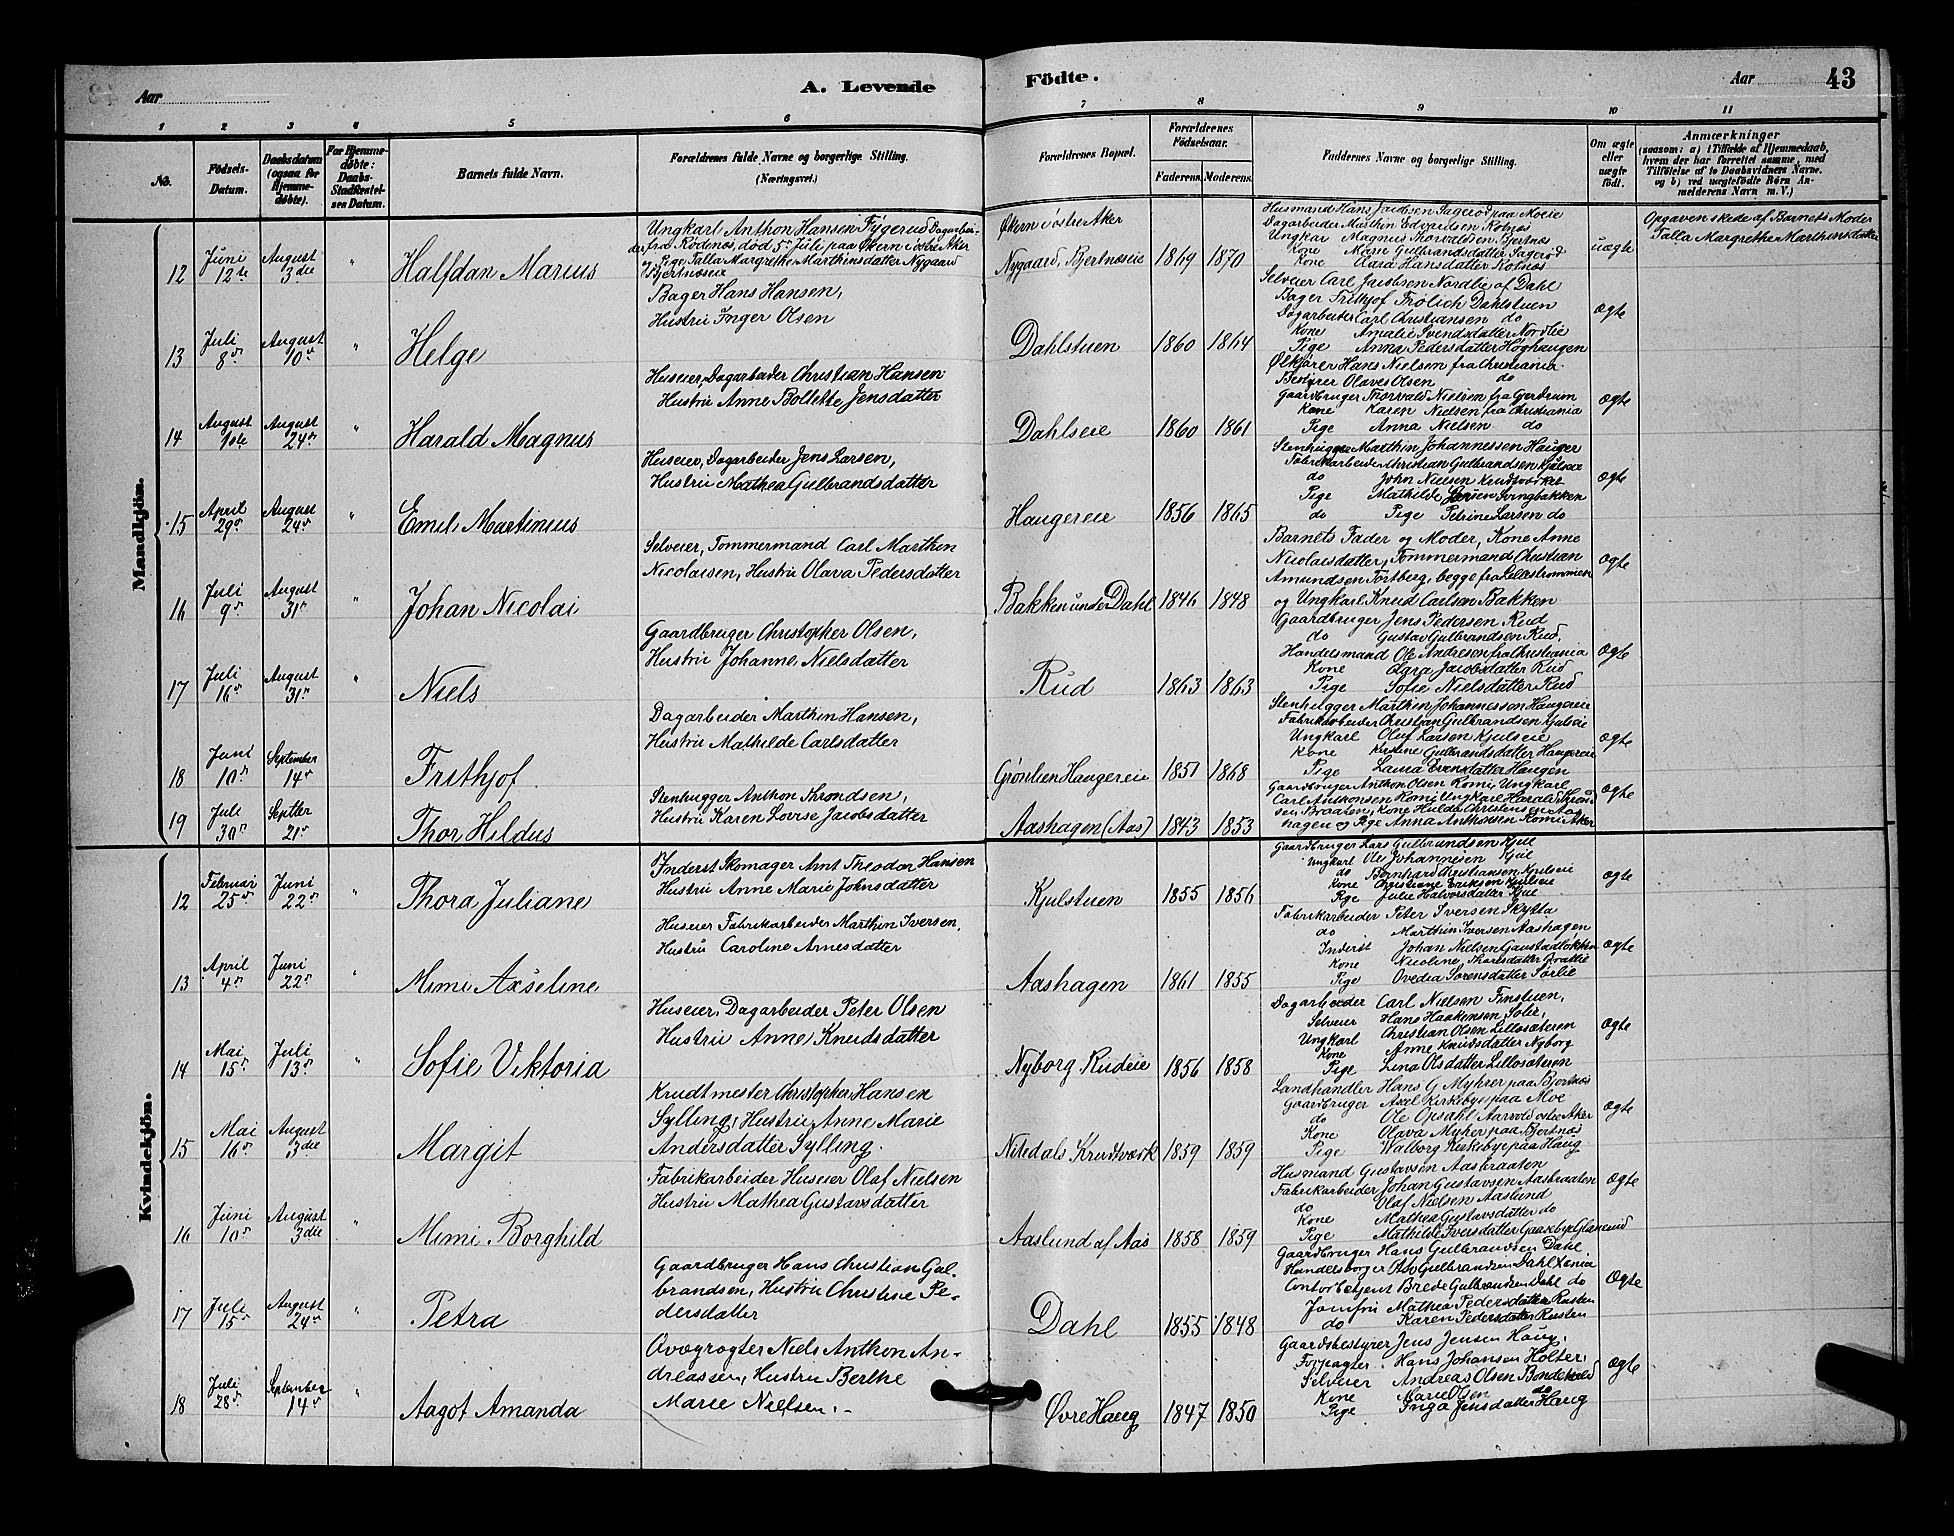 Aar
A. Levende
Födte.
Aar
43
1 2 3 4 5 6 7 8 9 10 11
No.
Födsels-
Datum.
Daabsdatum
(ogsaa for
Hjemme-
døbte).
For Hjemme-
døbte:
Daabs-
Stadfæstel-
ses Datum.
Barnets fulde Navn.
Forældrenes fulde Navne og borgerlige Stilling.
(Næringsvei.)
Forældrenes Bopæl.
Forældrenes
Födselsaar.
Faderens. Moderens.
Faddernes Navne og borgerlige Stilling.
Om ægte
eller
uægte
födt.
Anmærkninger
(saasom: a) i Tilfælde af Hjemmedaab,
hvem der har forrettet samme, med
Tilföielse af to Daabsvidners Navne.
og b) ved uægtefödte Börn An-
melderens Navn m. V.)
Mandkjön.
12
Juni
12te
August
3die
"
Halfdan Marius
Ungkarl Anthon Hansen Fygerud Dagarbei-
der fra Rödenæs, död 5te Juli paa Økern i östre Aker
og Pige Talla Margrethe Marthinsdatter Nygaard
Bjertnæseie
Økern i östre Aker
Nygaard, Bjertnæseie
1869
1870
Husmand Hans Jacobsen Sagerod paa Moeie
Dagarbeider Marthin Edvardsen Kolnæs
Ungkar Magnus Thorvaldsen Bjertnæs
Kone Marie Gulbrandsdatter Sagerød
Kone Clara Hansdatter Kolnæs
uægte
Opgaven skede af Barnets Moder
Talla Margrethe Marthinsdatter
13
Juli
8de
August
10de
"
Helge
Bager Hans Hansen,
Hustru Inger Olsen
Dahlstuen
1860
1864
Selveier Carl Jacobsen Nordlie af Dahl
Bager Frithjof Frölich Dahlstuen
Dagarbeider Carl Christiansen do
Kone Amalie Svendsdatter Nordlie
Pige Anna Pedersdatter Höghaugen
ægte
14
August
1ste
August
24de
"
Harald Magnus
Huseier, Dagarbeider Christian Hansen
Hustru Anne Bollette Jensdatter
Dahlseie
1860
1861
Ølkjører Hans Nielsen fra Christiania
Bestyrer Olaves Olsen do
Gaardbruger Thorvald Nielsen fra Gjerdrum
Kone Karen Nielsen fra Christiania
Pige Anna Nielsen do
ægte
15
April
29de
August
24de
"
Emil Martinius
Huseier, Dagarbeider Jens Larsen,
Hustru Mathea Gulbrandsdatter
Haugereie
1856
1865
Stenhugger Marthin Johannessen Hauger
Fabrikarbeider Christian Gulbrandsen Kjulseie
do John Nielsen Krudtværket
Pige Mathilde Larsen Svingbakken
do Pige Petrine Larsen do
ægte
16
Juli
9de
August
31te
"
Johan Nicolai
Selveier, Tommermand Carl Marthin
Nicolaisen, Hustru Olava Pedersdatter
Bakken under Dahl
1846
1848
Barnets Fader og Moder, Kone Anne
Nicolaisdatter, Tommermand Christian
Amundsen Torsberg, begge fra Lillestrommen
og Ungkarl Knud Carlsen Bakken
ægte
17
Juli
16de
August
31te
"
Niels
Gaardbruger Christopher Olsen,
Hustru Johanne Nielsdatter
Rud
1863
1863
Gaardbruger Jens Pedersen Rud
do Gustav Gulbrandsen Rud,
Handelsmand Ole Andresen fra Christiania
Kone Clara Jacobsdatter Rud
Pige Sofie Nielsdatter Rud
ægte
18
Juni
10de
September
14de
Frithjof
Dagarbeider Marthin Hansen,
Hustru Mathilde Carlsdatter
Grönlien Haugereie
1851
1868
Stenhugger Marthin Johannessen Haugereie
Fabrikarbeider Christian Gulbrandsen Kjulseie
Ungkarl Oluf Larsen Kjulseie
Kone Kristine Gulbrandsdatter Haugereie
Pige Laura Evensdatter Haugen
ægte
19
Juli
30te
Septbr
21de
Thor Hildus
Stenhugger Anthon Throndsen,
Hustru Karen Lovise Jacobsdatter
Aashagen (Aas)
1843
1853
Gaardbruger Anthon Olsen Romi, Ungkarl
Carl Anthonsen Romi, Ungkarl Harald Thrond-
sen Braaten, Kone Hulda Christensen Aas-
hagen og Pige Anna Anthonsen Romi Aker
ægte
Kvindekjön.
12
Februar
25de
Juni
22de
"
Thora Juliane
Inderst Skomager Arnt Theodor Hansen
Hustru Anne Marie Johnsdatter
Kjulstuen
1855
1856
Gaardbruger Lars Gulbrandsen Kjul
Ungkarl Ole Johannesen Kjul
do Bernhard Christiansen Kjulseie
Kone Christiane Eriksen Kjulseie
Pige Julie Halvorsdatter Kjul
ægte
13
April
4de
Juni
22de
"
Mimi Axseline
Huseier Fabrikarbeider Marthin Iversen,
Hustru Caroline Arnesdatter
Aashagen
1861
1855
Fabrikarbeider Peter Iversen Skytta
do Marthin Iversen Aashagen
Inderst Johan Nielsen Gaustadlökken
Kone Nicoline Thorsdatter Brattlie
Pige Ovedia Sörensdatter Sørlie
ægte
14
Mai
15de
Juli
13de
"
Sofie Viktoria
Huseier, Dagarbeider Peter Olsen
Hustru Anne Knudsdatter
Nyborg Rudeie
1856
1858
Dagarbeider Carl Nielsen Finstuen,
Selveier Hans Haakensen Soler,
Ungkarl Christian Olsen Lillosæteren
Kone Anne Knudsdatter Nyborg
Pige Lina Olsdatter Lillosæteren
ægte
15
Mai
16de
August
3die
Margit
Krudtmester Christopher Hansen
Sylling, Hustru Anne Marie
Andersdatter Sylling.
Nitedals Krudtværk
1859
1859
Landhandler Hans G Myhrer paa Bjertnæs
Gaardbruger Axel Kirkebye paa Moe
do Ole Opsahl Aarvold östre Aker
Kone Olava Myhrer paa Bjertnæs
Pige Walborg Kirkebye paa Haug
ægte
16
Juni
10de
August
3die
"
Mimi Borghild
Fabrikarbeider Huseier Olaf Nielsen
Hustru Mathea Gustavsdatter
Aaslund af Aas
1858
1859
Husmand Gustavsen Aasbraaten
Fabrikarbeider Johan Gustavsen Aasbraaten
do Olaf Nielsen Aaslund
Kone Mathea Gustavsdatter do
Pige Mathilde Iversdatter Gaasebye Glanerud
ægte
17
Juli
15de
August
24de
"
Petra
Gaardbruger Hans Christian Gul-
brandsen, Hustru Christine Pe-
dersdatter
Dahl
1855
1848
Gaardbruger Hans Gulbrandsen Dahl
Handelsborger Gulbrandsen Dahl Xania
Contorbetjent Brede Gulbrandsen Dahl do
Jomfru Mathea Pedersdatter Rusten
do Karen Pedersdatter Rusten
ægte
18
Juli
28de
September
14de
"
Aagot Amanda
Qvægrogter Niels Anthon An-
dreassen, Hustru Berthe
Marie Nielsen.
Øvre Haug
1847
1850
Gaardsbestyrer Jens Jensen Haug,
Forpagter Hans Johansen Holter,
Selveier Andreas Olsen Bondekold
Kone Marie Olsen do
Pige Inga Jensdatter Haug
ægte